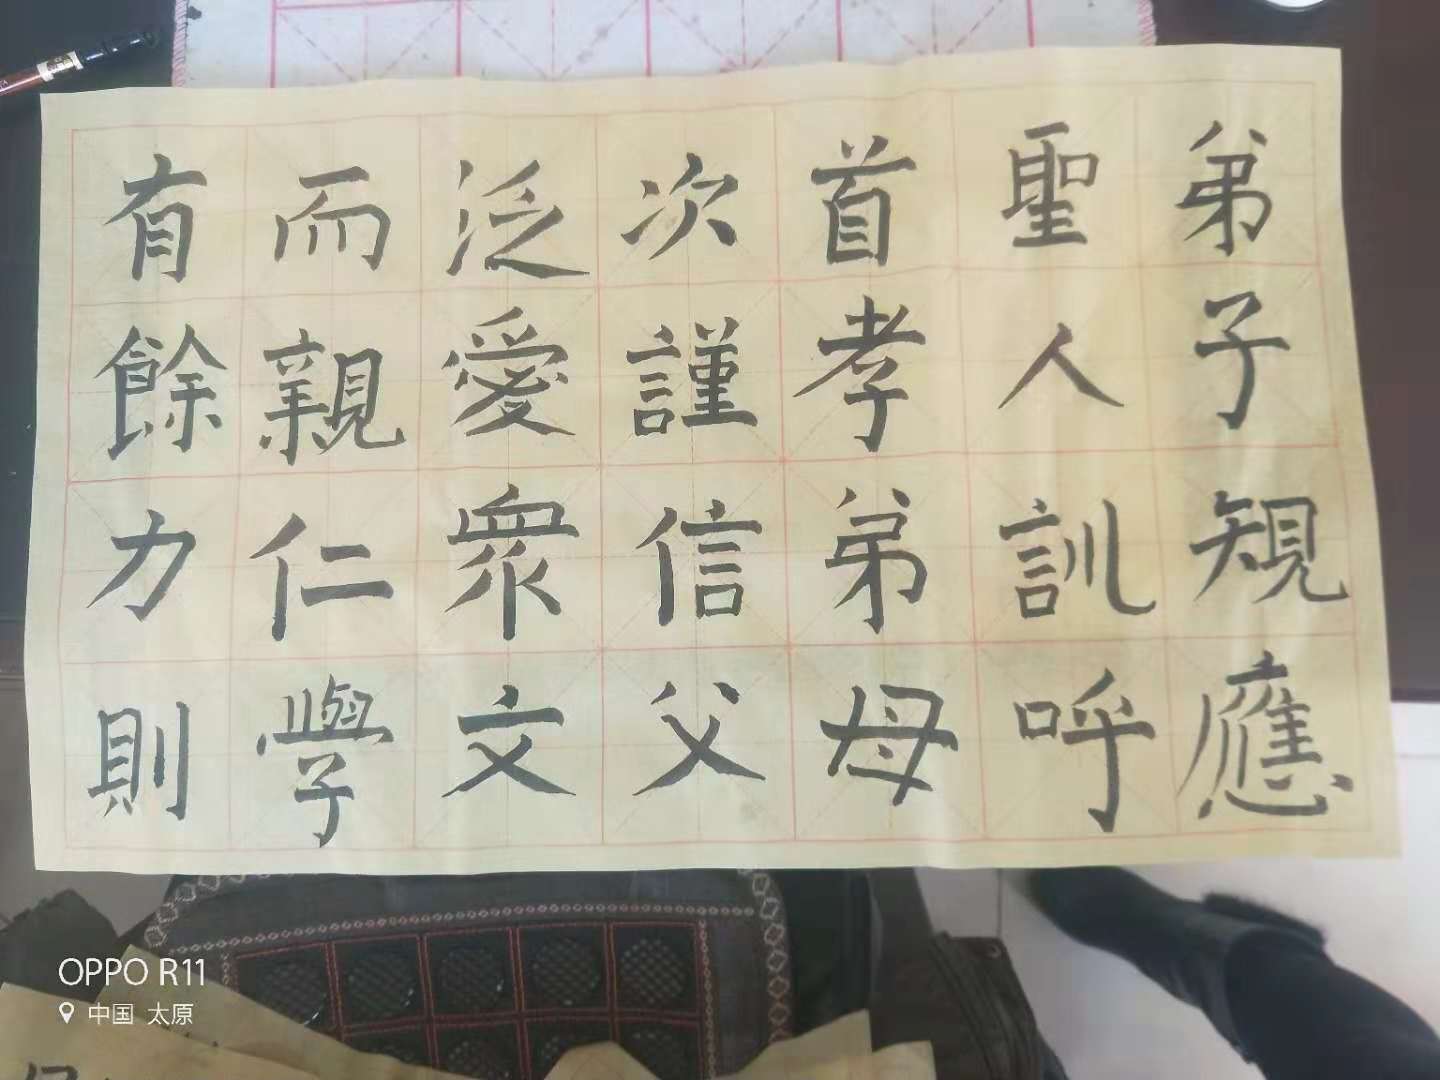 弟子規應
聖人訓呼
首孝弟母
次謹信父
泛愛眾文
而親仁學
有餘力則
OPPO R11
中国 太原